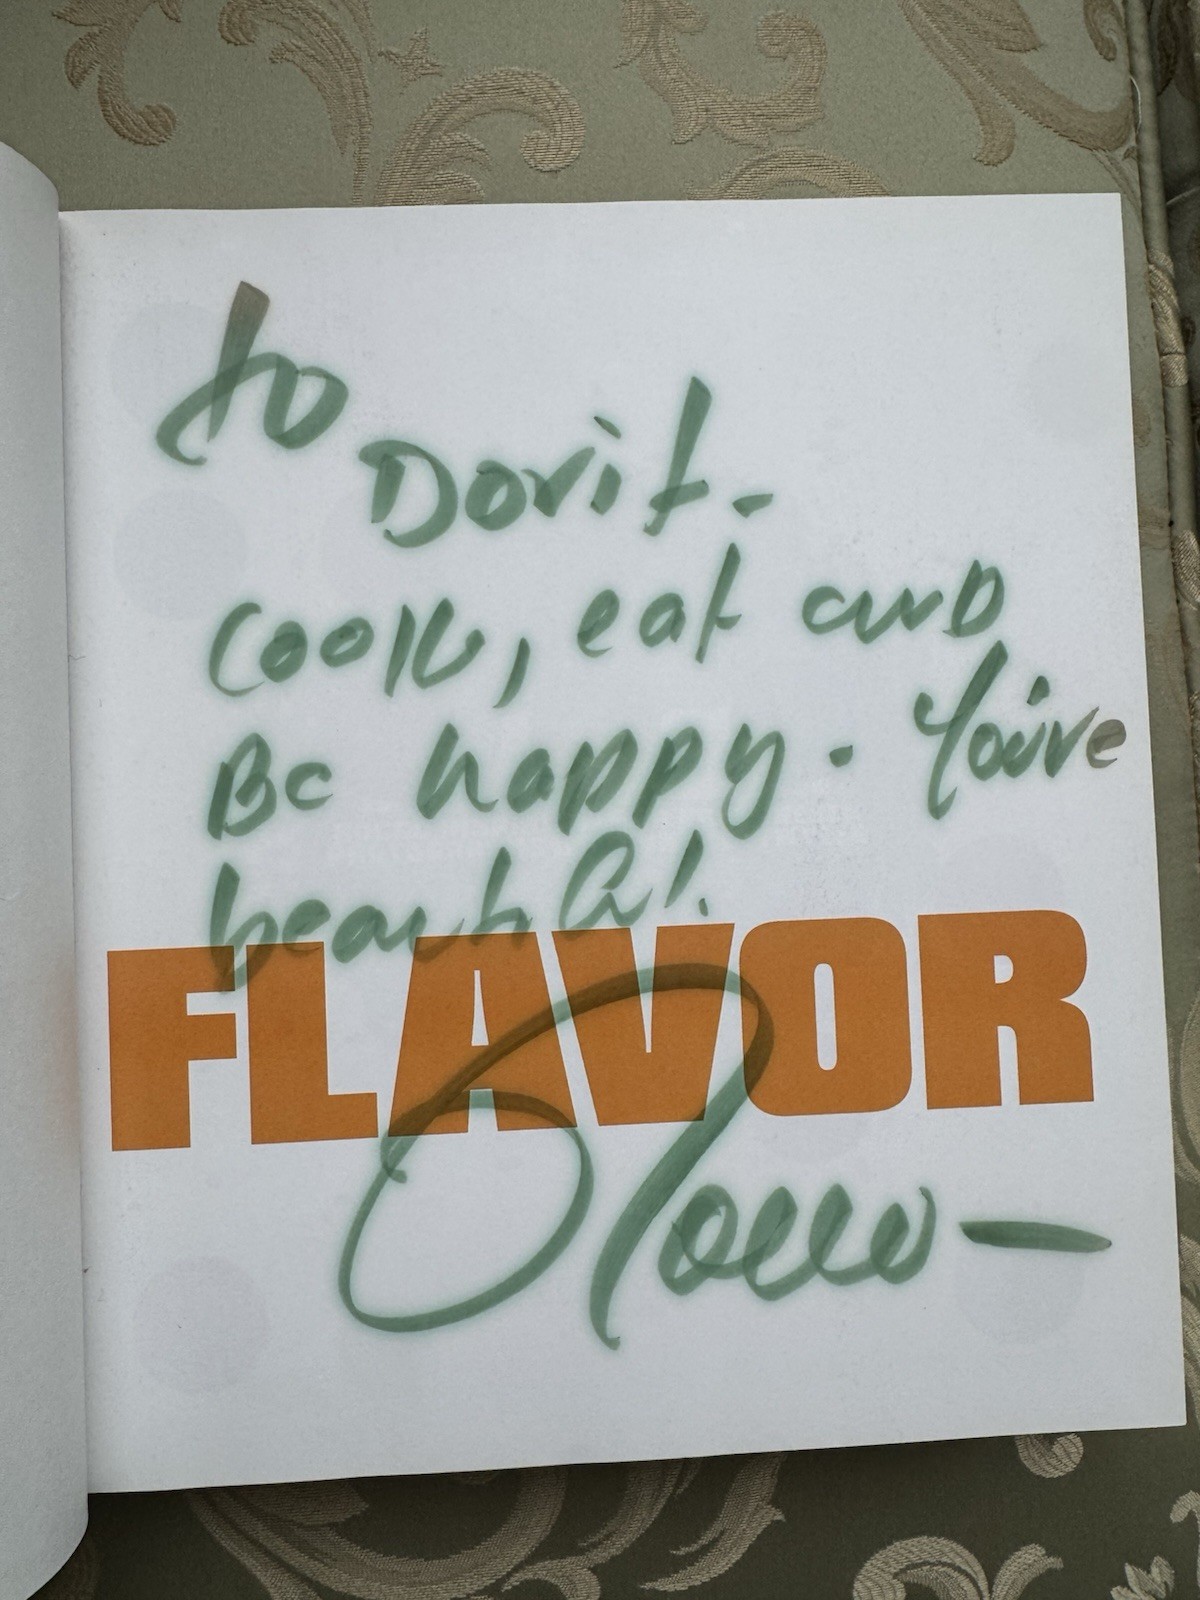 to
Dorit -
Cook, eat and
Be happy. You're
beautiful!
FLAVOR